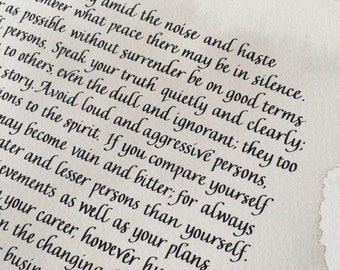 amid the noise and haste
what peace there may be in silence.
as possible without surrender be on good terms
persons. Speak your truth quietly and clearly;
to others, even the dull and ignorant; they too
story. Avoid loud and aggressive persons,
to the spirit. If you compare yourself
may become vain and bitter; for always
and lesser persons than yourself.
as well as your plans.
your career, however
the changing